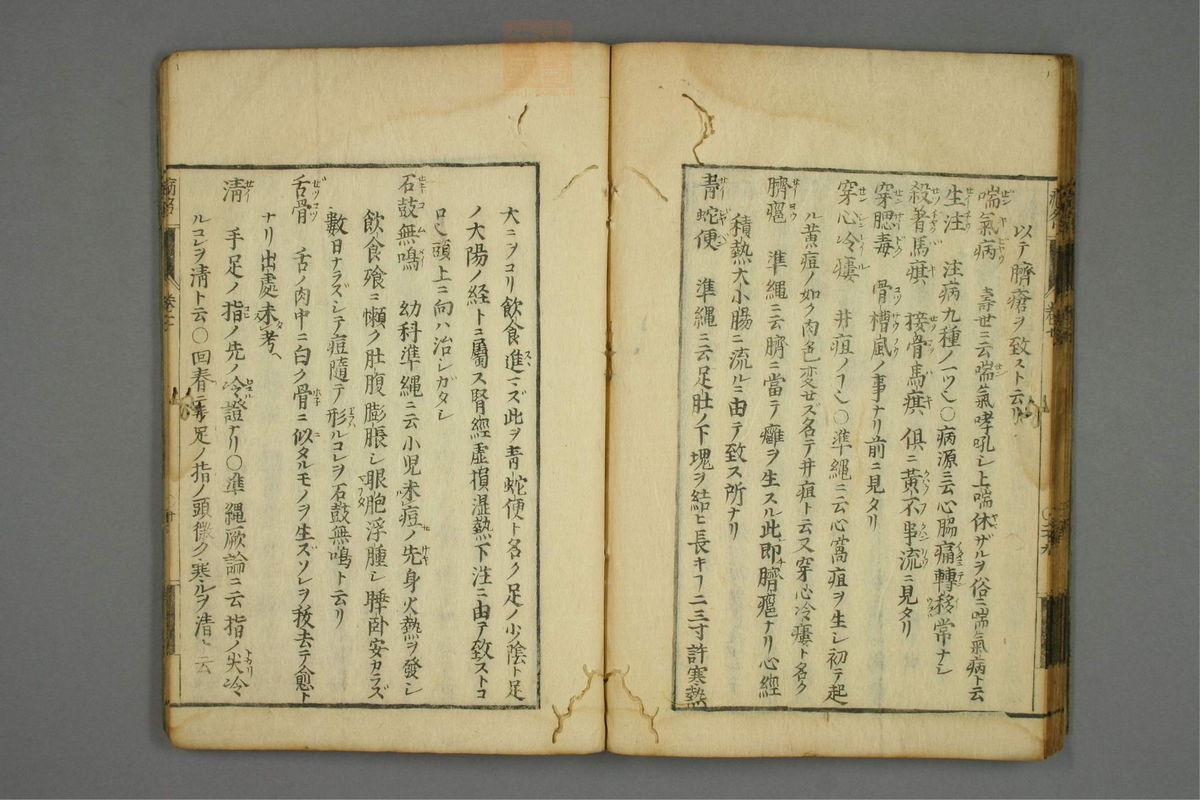 以テ臍瘡ヲ致スト云リ
喘氣病 壽世ニ云喘氣哮吼シ上喘休ザルヲ俗ニ喘氣病ト云
生注 注病九種ノ一ツ也〇病源ニ云心腸痛轉移常ナシ
殺著馬瘼 接骨馬瘼 俱ニ黃不串流ニ見タリ
穿腮毒 骨槽風ノ事ナリ前ニ見タリ
穿心冷瘻 井疽ノ〇準縄ニ云心窩疽ヲ生シ初テ起
ル黄痘ノ如ク肉色変セズ名テ井疽ト云又穿心冷瘻ト名ク
臍癰 準縄ニ云臍ニ當テ癰ヲ生スル此即臍癰ナリ心經
積熱大小腸ニ流ルニ由テ致ス所ナリ
青蛇便 準縄ニ云足肚ノ下塊ヲ結ヒ長キ二三寸許寒熱
大ニヲコリ飲食進マズ此ヲ青蛇便ト名ク足ノ少陰ト足
ノ太陽ノ経トニ屬ス腎經虚損湿熱下注ニ由テ致ストコ
ロ也頭上ニ向ハ治シガタシ
石鼓無鳴 幼科準縄ニ云小児未痘ノ先身火熱ヲ發シ
飲食飧ニ懶ク肚腹膨脹シ眼胞浮腫シ睡卧安カラズ
數日ナラズシテ痘隨テ形ルコレヲ石鼓無鳴ト云リ
舌骨 舌ノ肉中ニ白ク骨ニ似タルモノヲ生ズソレヲ抜去テ愈ト
ナリ出處未考
清 手足ノ指ノ先ノ冷證ナリ〇準縄厥論ニ云指ノ尖冷
ルコレヲ清ト云〇回春ニ手足ノ指ノ頭微ク寒ルヲ清ト云